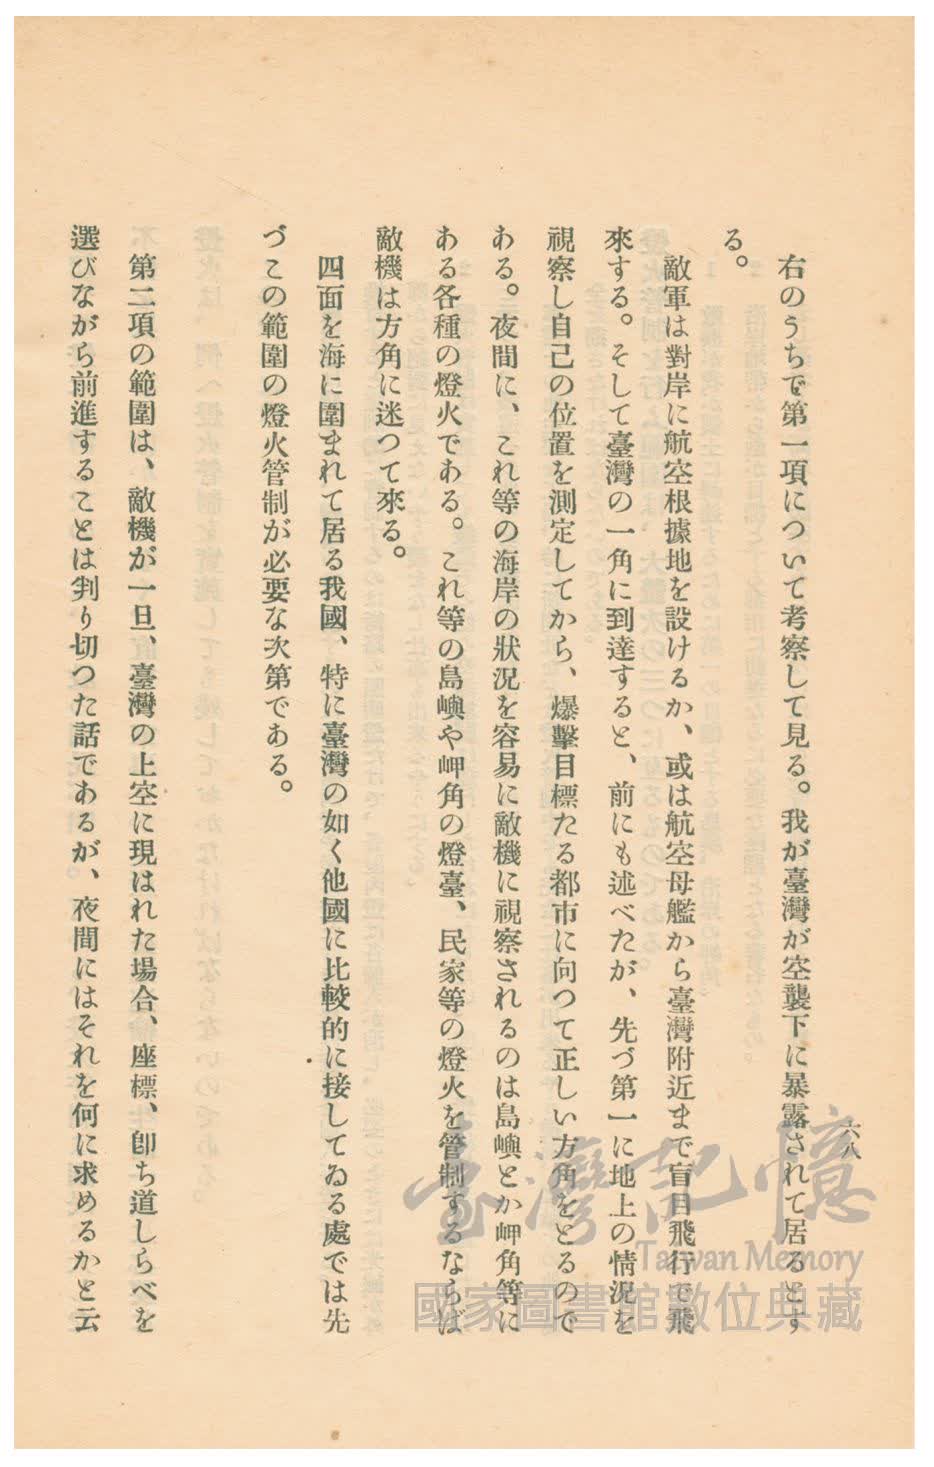 六八
右のうちで第一項について考察して見る。我が臺灣が空襲下に暴露されて居るとす
る。
敵軍は對岸に航空根據地を設けるか、或は航空母艦から臺灣附近まで盲目飛行で飛
來する。そして臺灣の一角に到達すると、前にも述べたが、先づ第一に地上の情況を
視察し自己の位置を測定してから、爆擊目標たる都市に向つて正しい方角をとるので
ある。夜間に、これ等の海岸の狀況を容易に敵機に視察されるのは島嶼とか岬角等に
ある各種の燈火である。これ等の島嶼や岬角の燈臺、民家等の燈火を管制するならば
敵機は方角に迷つて來る。
四面を海に圍まれて居る我國、特に臺灣の如く他國に比較的に接してゐる處では先
づこの範圍の燈火管制が必要な次第である。
第二項の範圍は、敵機が一旦、臺灣の上空に現はれた場合、座標、卽ち道しらべを
選びながら前進することは判り切つた話であるが、夜間にはそれを何に求めるかと云
臺灣記憶
Taiwan Memory
國家圖書館數位典藏